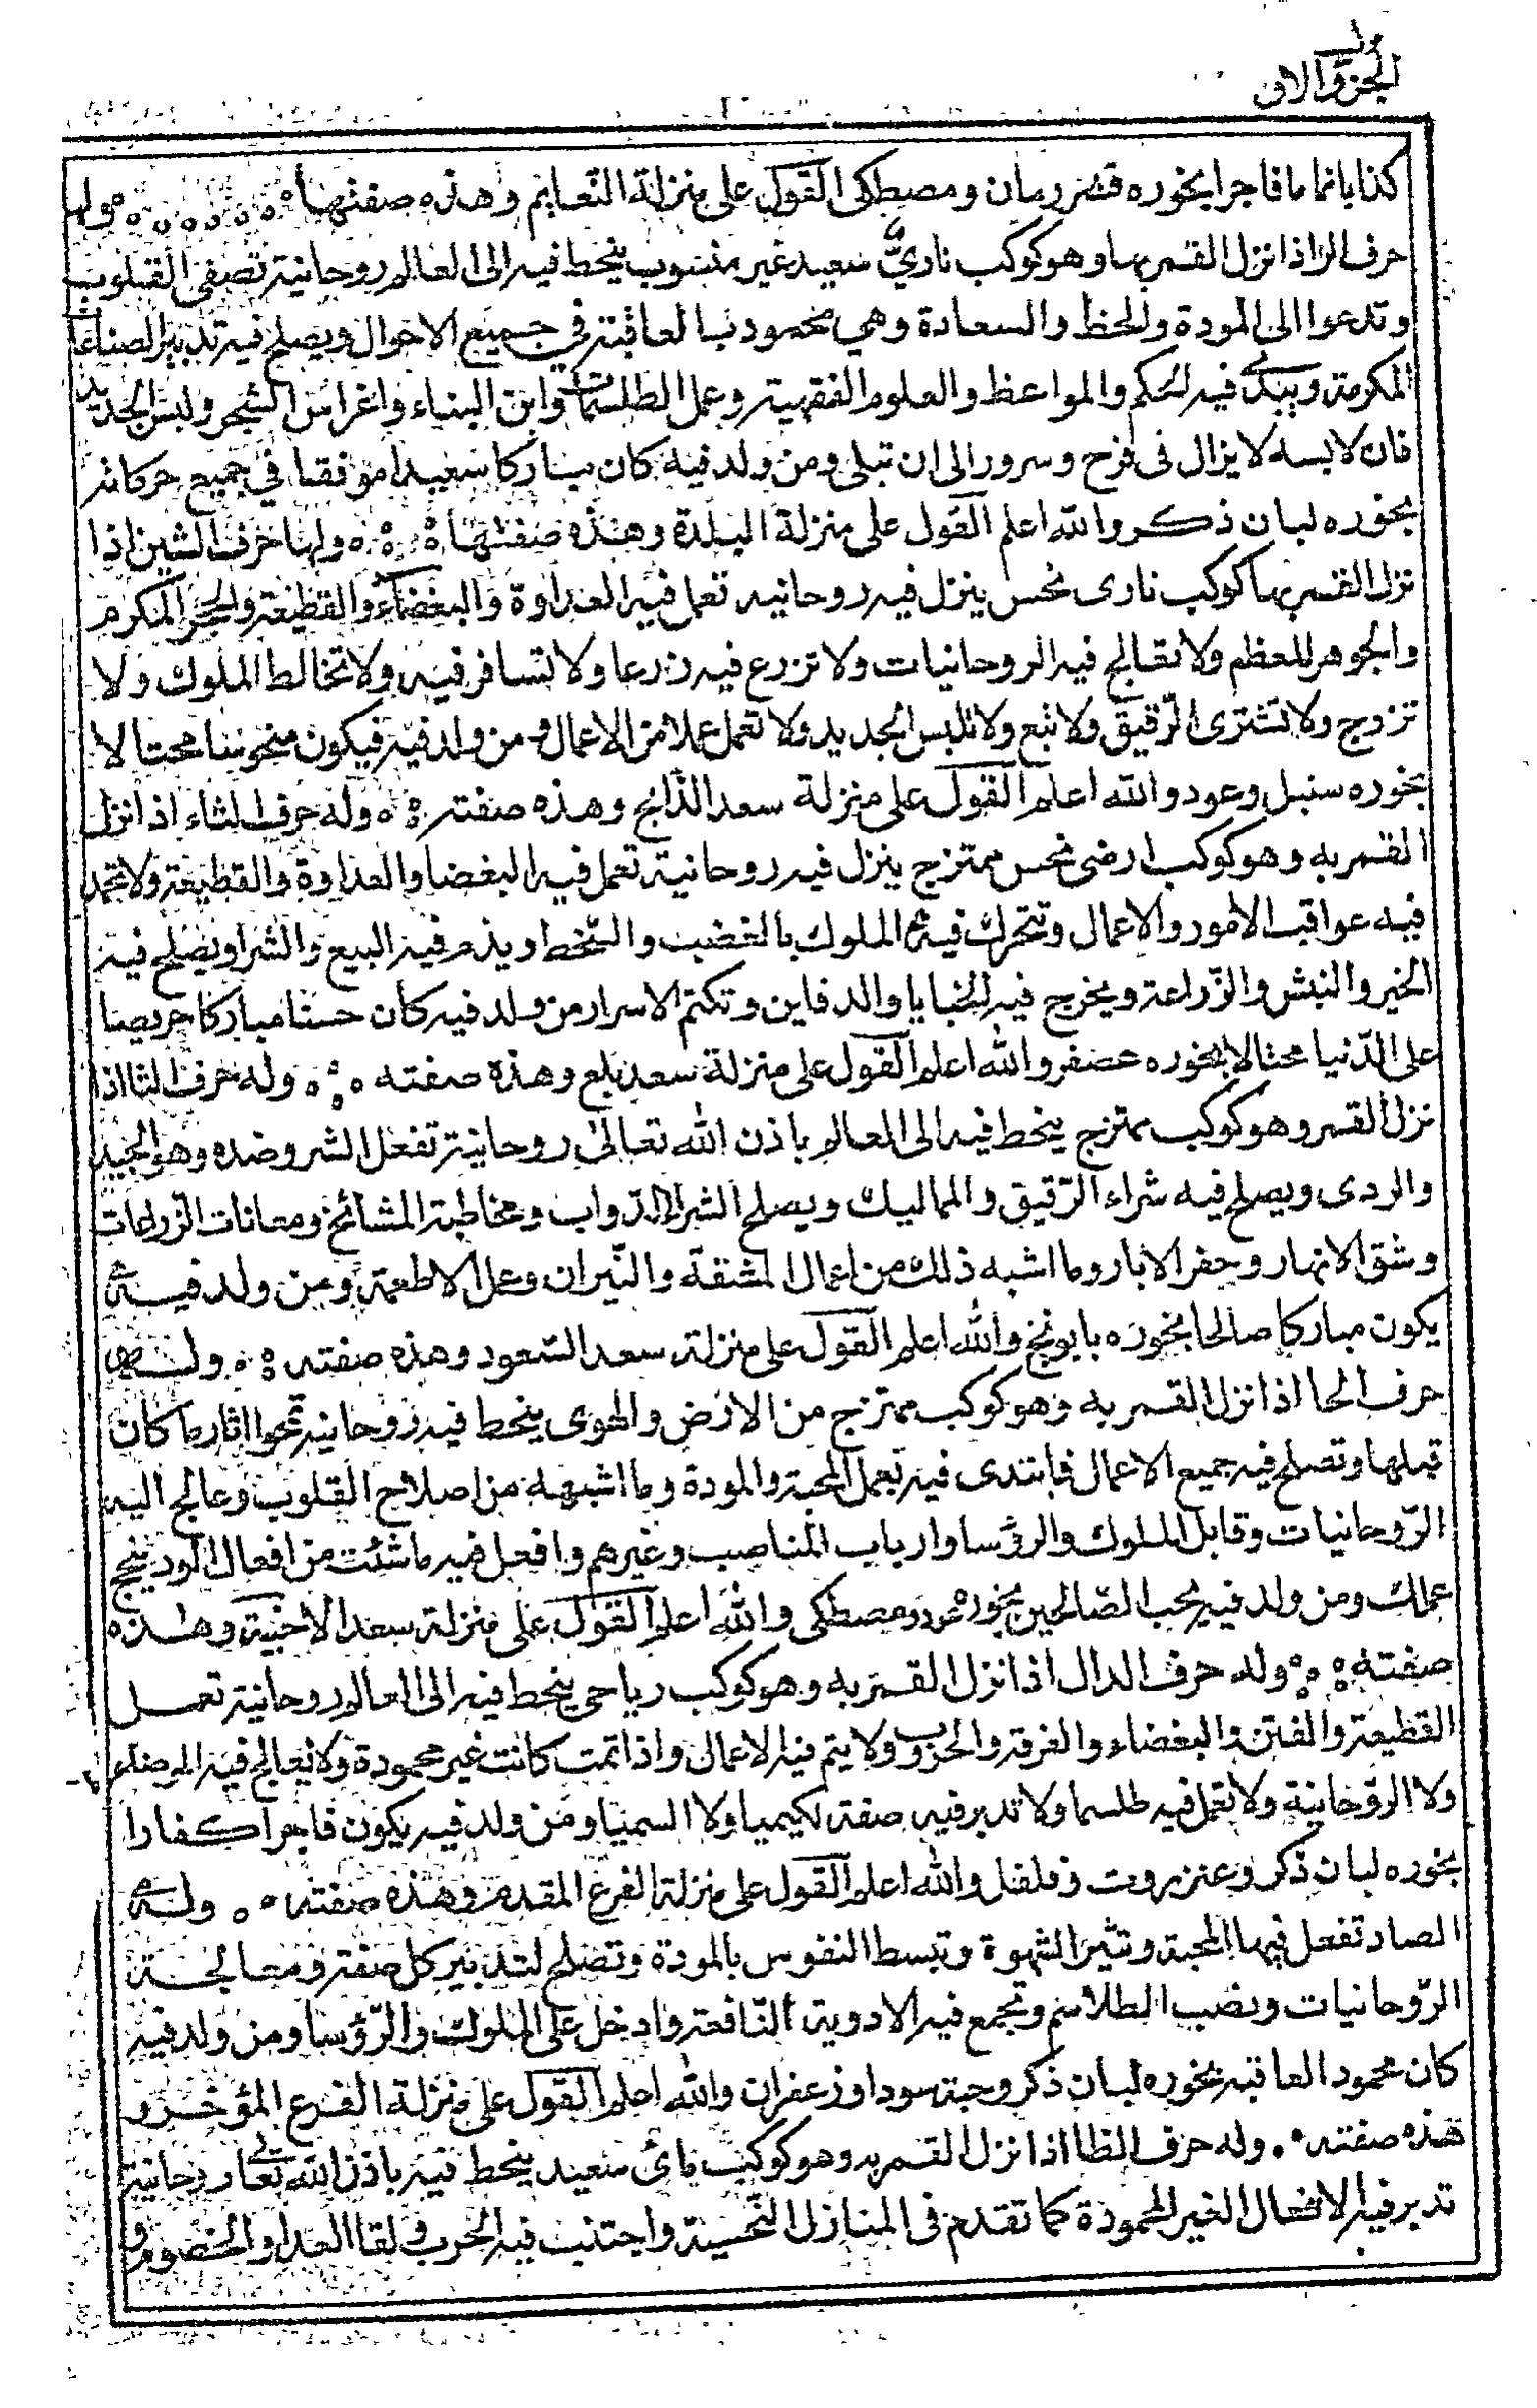 الجزء الاول
كذابا نماما فاجرا بخوره قشر رمان ومصطكى القول على منزلة النعايم وهذه صفتها ولها
حرف الرا اذا نزل القمر بها وهو كوكب ناري سعيد غير منسوب ينحط فيه الى العالم روحانية تصفى القلوب
وتدعوا الى المودة والحظ والسعادة وهي محمودة العاقبة في جميع الاحوال ويصلح فيه تدبير الصناعة
المكرمة ويبكى فيه الحكم والمواعظ والعلوم الفقهية وعمل الطلسمات وابن البناء واغراس الشجر ولبس الجديد
فان لابسه لا يزال فى فرح وسرور الى ان تبلى ومن ولد فيه كان مباركا سعيدا موفقا في جميع حركاته
بخوره لبان ذكر والله اعلم القول على منزلة البلدة وهذه صفتها ولها حرف الشين اذا
نزل القمر بها كوكب نارى نحس ينزل فيه روحانيه تعمل فيه العداوة والبغضاء والقطيعة والحجر المكرم
والجوهر المعظم ولا تعالج فيه الروحانيات ولا تزرع فيه زرعا ولا تسافر فيه ولا تخالط الملوك ولا
تزوج ولا تشترى الرقيق ولا تبع ولا تلبس الجديد ولا تعمل عملا من الاعمال ومن ولد فيه فيكون منحوسا محتالا
بخوره سنبل وعود والله اعلم القول على منزلة سعد الذابح وهذه صفته وله حرف الثاء اذا نزل
القمر به وهو كوكب ارضى نحس ممتزج ينزل فيه روحانية تعمل فيه البغضا والعداوة والقطيعة ولا تحمد
فيه عواقب الامور والاعمال وتتحرك فيه الملوك بالغضب والسخط ويذم فيه البيع والشرا ويصلح فيه
الخير والنبش والزراعة ويخرج فيه الخبايا والدفاين وتكتم الاسرار من ولد فيه كان حسنا مباركا حريصا
على الدنيا محتالا بخوره عصفر والله اعلم القول على منزلة سعد بلع وهذه صفته وله حرف التا اذا
نزل القمر وهو كوكب ممتزج ينحط فيه الى العالم باذن الله تعالى روحانية تفعل الشر وضده وهو الجيد
والردى ويصلح فيه شراء الرقيق والمماليك ويصلح الشراء الدواب ومخاطبة المشائخ ومعانات الزراعات
وشق الانهار وحفر الابار وما اشبه ذلك من اعمال المشقة والنيران وعمل الاطعمة ومن ولد فيه
يكون مباركا صالحا بخوره بابونج والله اعلم القول على منزلة سعد السعود وهذه صفته وله
حرف الحا اذا نزل القمر به وهو كوكب ممتزج من الارض والهوى ينحط فيه روحانيه تمحوا اثار ما كان
قبلها وتصلح فيه جميع الاعمال فابتدى فيه تعمل المحبة والمودة وما اشبهه من اصلاح القلوب وعالج اليه
الروحانيات وقابل الملوك والرؤسا وارباب المناصب وغيرهم وافعل فيه ما شئت من افعال الود ينجح
عملك ومن ولد فيه يحب الصالحين بخوره عود ومصطكى والله اعلم القول على منزلة سعد الاخبية وهذه
صفته وله حرف الدال اذا نزل القمر به وهو كوكب رياحى ينحط فيه الى العالم روحانية تعمل
القطيعة والفتن والبغضاء والفرقة والحروب ولا يتم فيه الاعمال واذا تمت كانت غير محمودة ولا يعالج فيه المرضاء
ولا الروحانية ولا تعمل فيه طلسما ولا تدبر فيه صفة لكيميا ولا السميا ومن ولد فيه يكون فاجرا كفارا
بخوره لبان ذكر وعنزروت وفلفل والله اعلم القول على منزلة الفرغ المقدم وهذه صفته وله
الصاد تفعل فيها المحبة وتثير الشهوة وتبسط النفوس بالمودة وتصلح لتدبير كل صفة ومعالجة
الروحانيات ونضب الطلاسم وتجمع فيه الادوية النافعة وادخل على الملوك والرؤسا ومن ولد فيه
كان محمود العاقبه بخوره لبان ذكر وحبة سودا وزعفران والله اعلم القول على منزلة الفرع المؤخر و
هذه صفته وله حرف الظا اذا نزل القمر به وهو كوكب مائ سعيد ينحط فيه باذن الله تعالى روحانية
تدبر فيه الافعال الغير المحمودة كما تقدم فى المنازل النحسية واجتنب فيه الحرب ولقا العدا والخضوم و